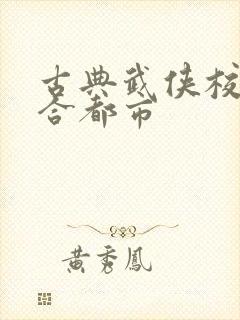 古典武侠校
合都市
黄秀鳳